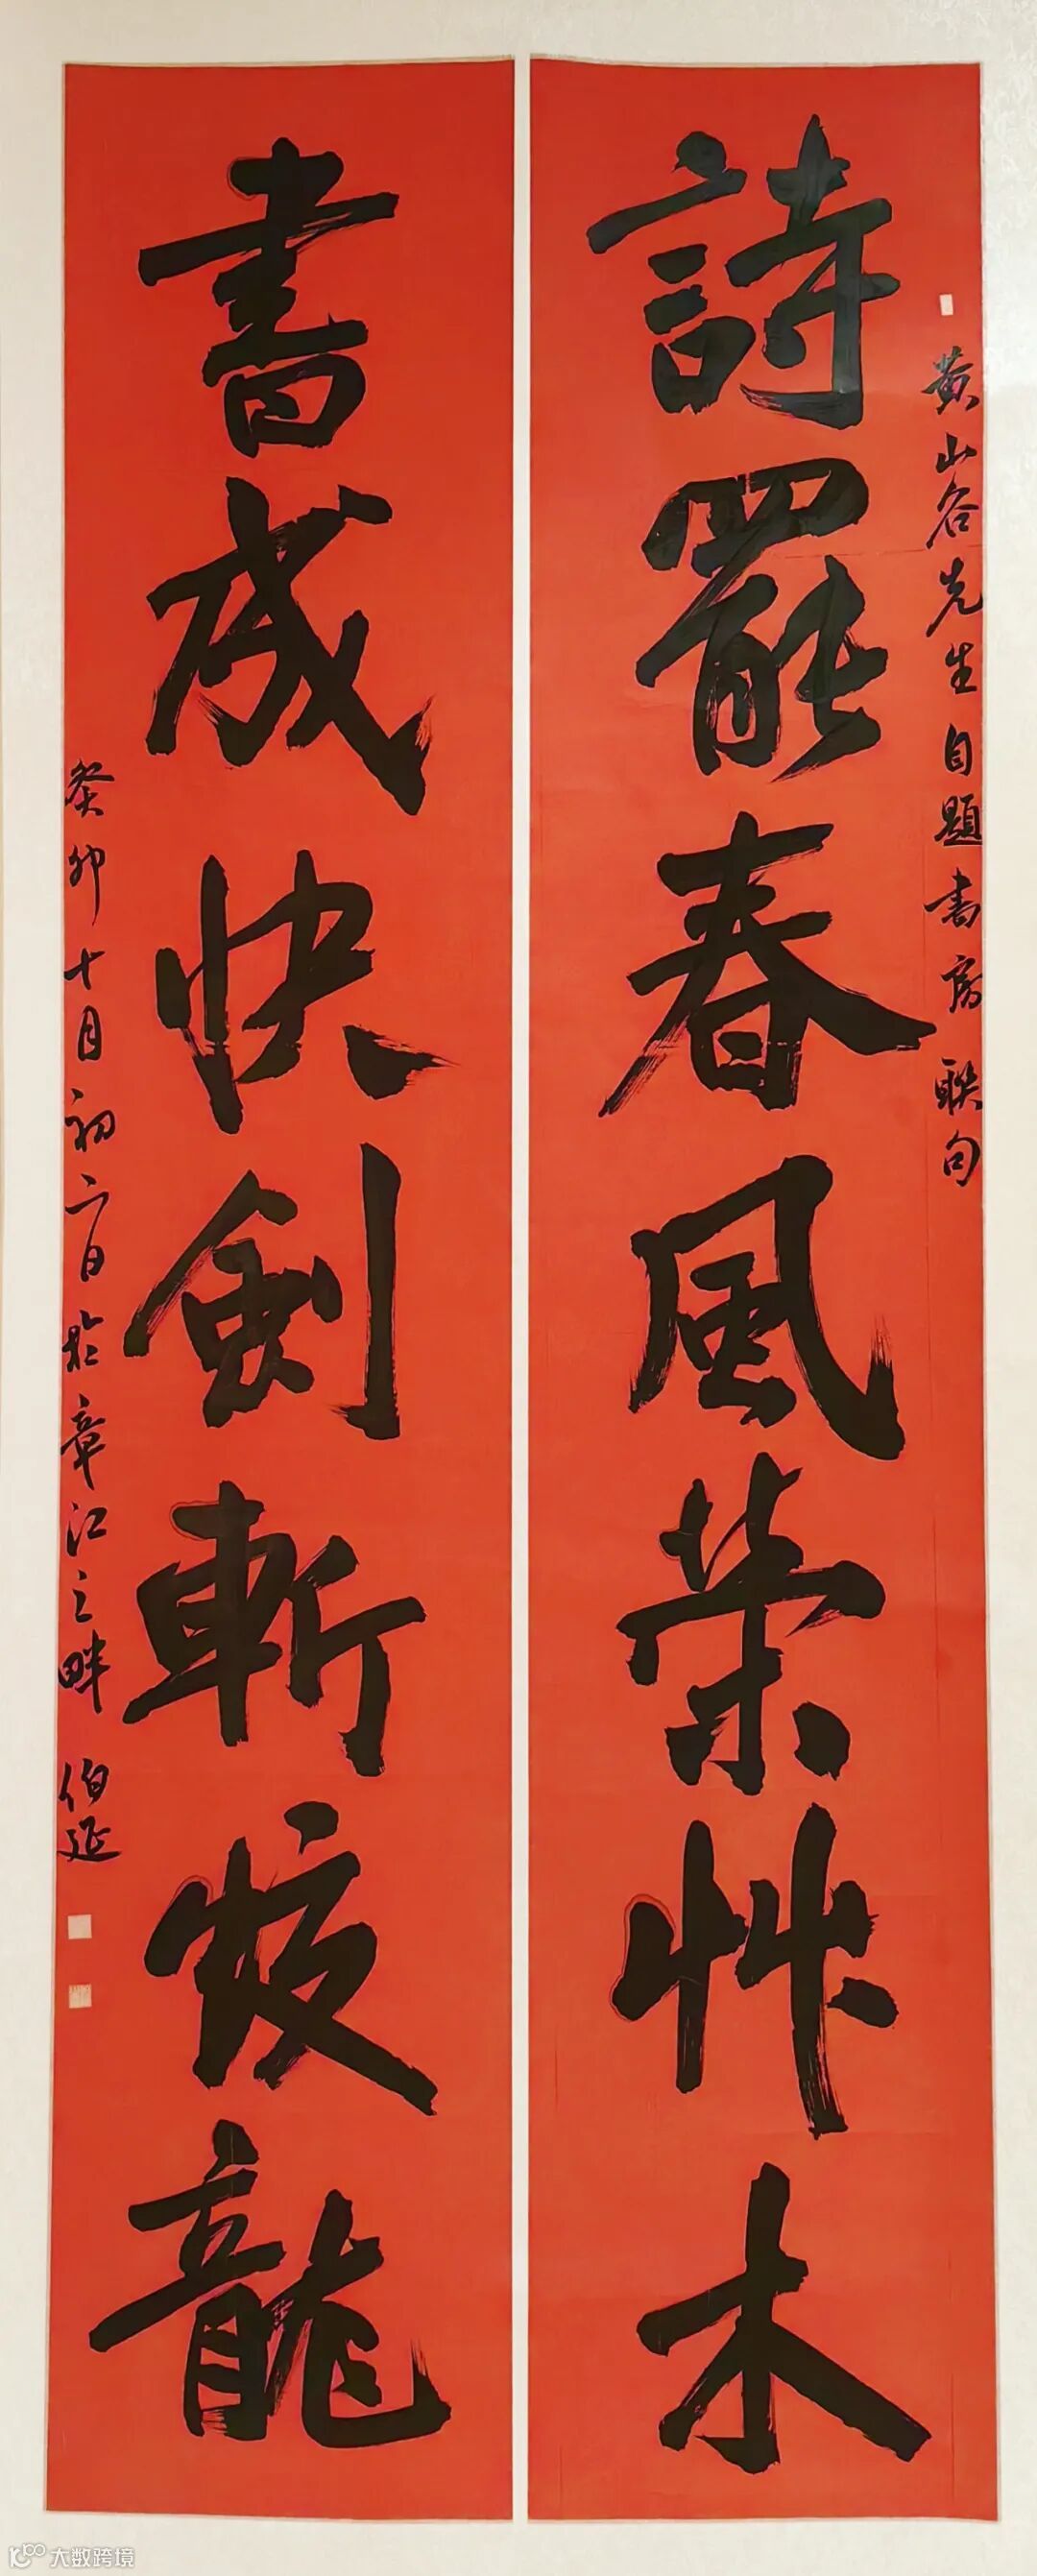 黄山谷先生自題書房聯句
詩罷春風榮艸木
書成快劍斬蛟龍
癸卯十月初二日於章江之畔 伯延
大数跨境